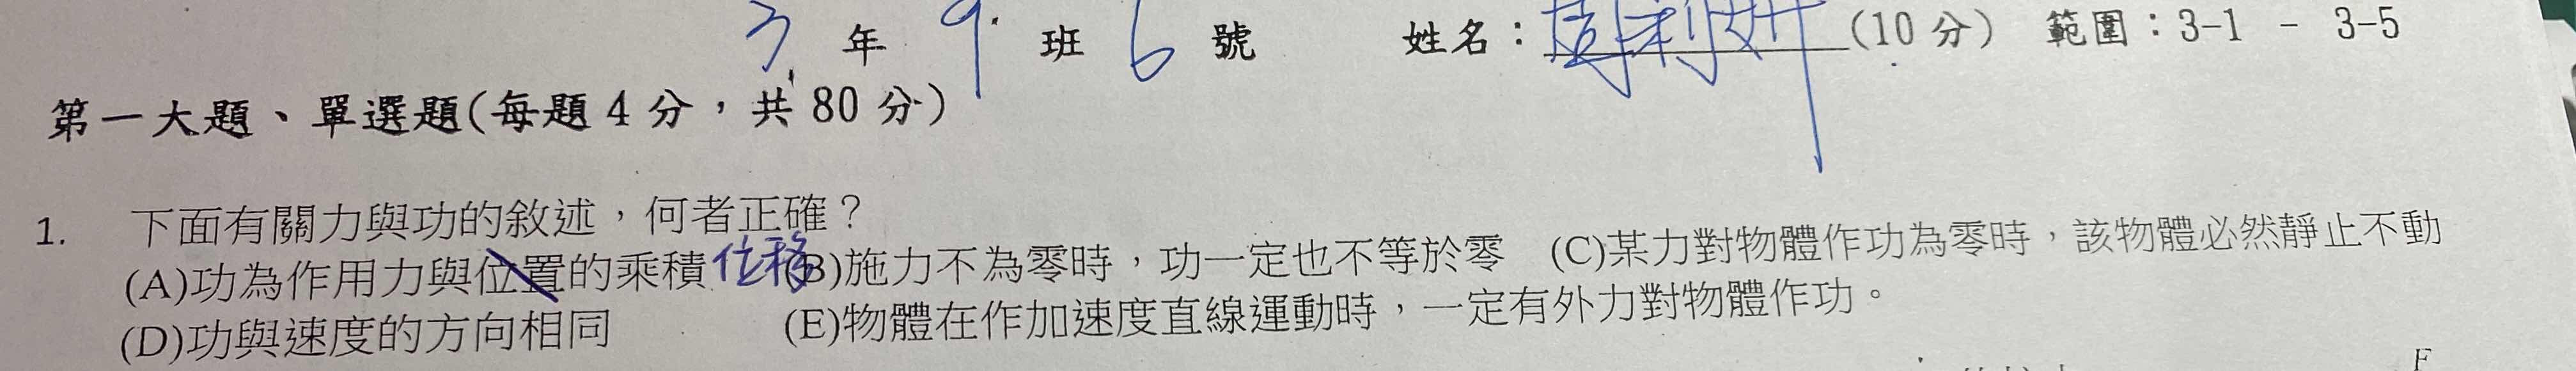 3 年 9 班 6 號 姓名：周莉姍 (10 分) 範圍：3-1 - 3-5
第一大題、單選題(每題 4 分，共 80 分)
1. 下面有關力與功的敘述，何者正確？
(A)功為作用力與位置的乘積 位移 (B)施力不為零時，功一定也不等於零 (C)某力對物體作功為零時，該物體必然靜止不動
(D)功與速度的方向相同 (E)物體在作加速度直線運動時，一定有外力對物體作功。
F